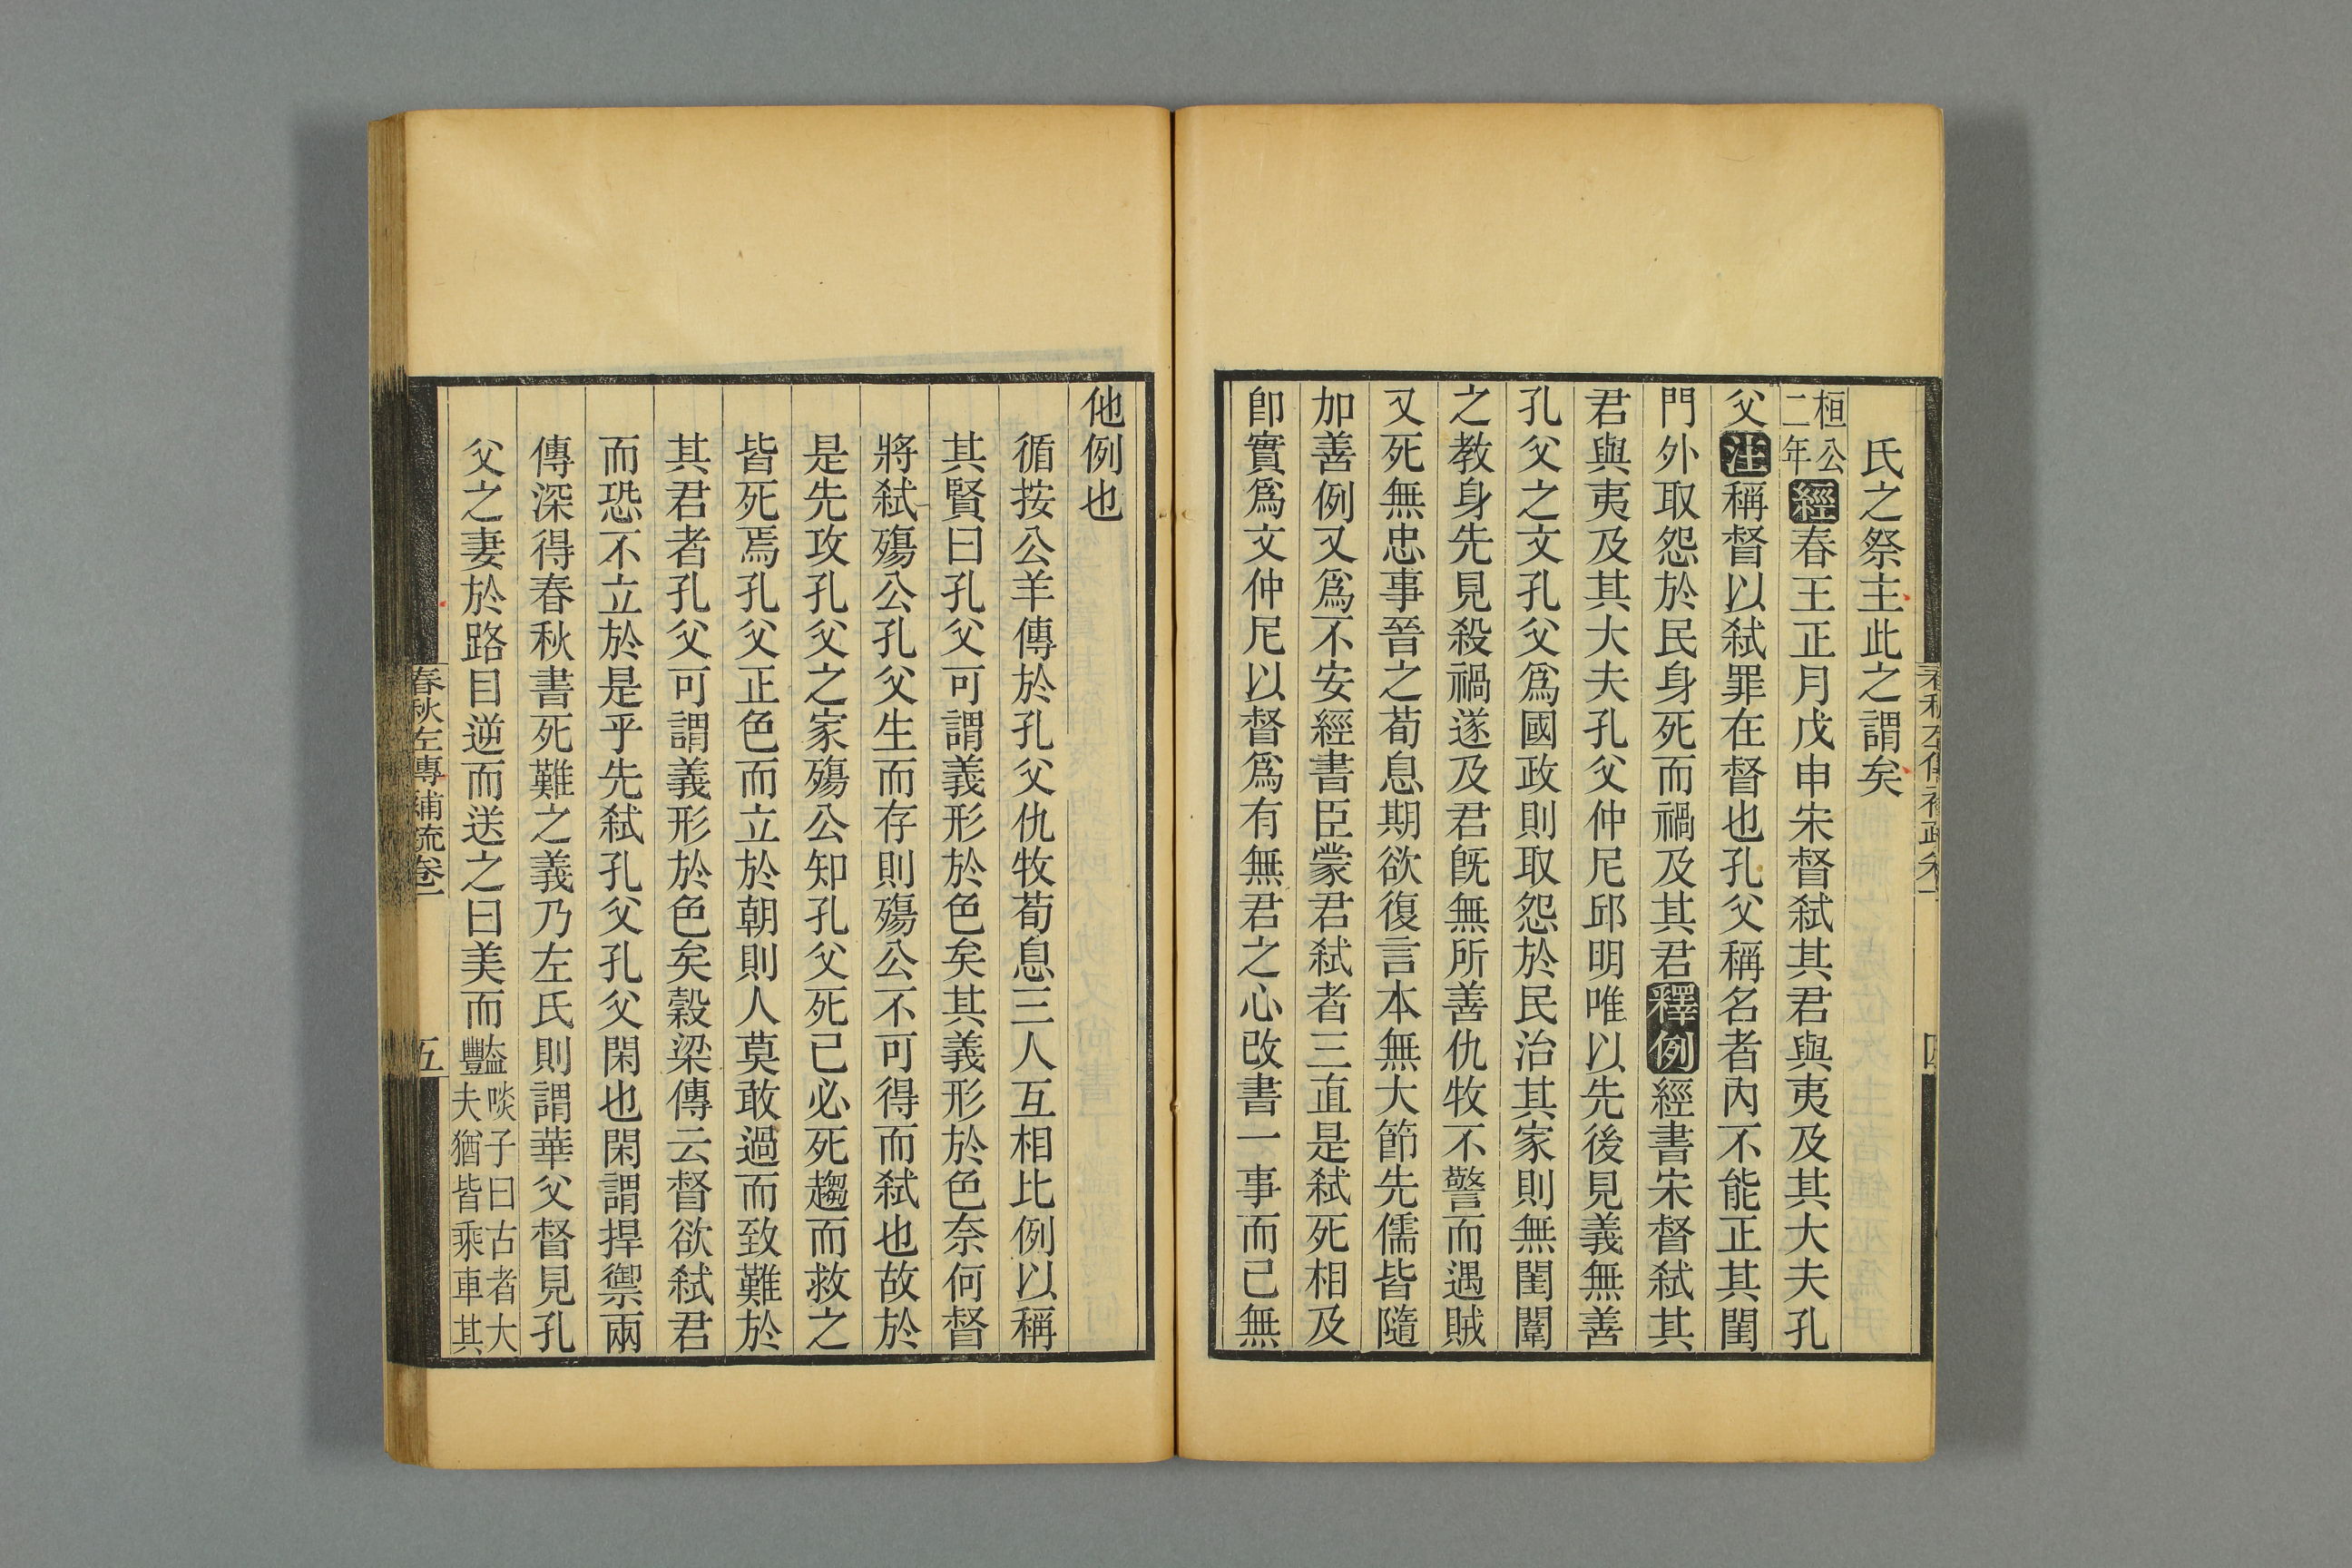 氏之祭主此之謂矣
桓公二年經春王正月戊申宋督弒其君與夷及其大夫孔
父注稱督以弒罪在督也孔父稱名者內不能正其閨
門外取怨於民身死而禍及其君釋例經書宋督弒其
君與夷及其大夫孔父仲尼邱明唯以先後見義無善
孔父之文孔父爲國政則取怨於民治其家則無閨闈
之教身先見殺禍遂及君旣無所善仇牧不警而遇賊
又死無忠事晉之荀息期欲復言本無大節先儒皆隨
加善例又爲不安經書臣蒙君弒者三直是弒死相及
卽實爲文仲尼以督爲有無君之心改書一事而已無
他例也
循按公羊傳於孔父仇牧荀息三人互相比例以稱
其賢曰孔父可謂義形於色矣其義形於色奈何督
將弒殤公孔父生而存則殤公不可得而弒也故於
是先攻孔父之家殤公知孔父死己必死趨而救之
皆死焉孔父正色而立於朝則人莫敢過而致難於
其君者孔父可謂義形於色矣穀梁傳云督欲弒君
而恐不立於是乎先弒孔父孔父閑也閑謂捍禦兩
傳深得春秋書死難之義乃左氏則謂華父督見孔
父之妻於路目逆而送之曰美而豔啖子曰古者大夫猶皆乘車其
春秋左傳補疏卷一
五